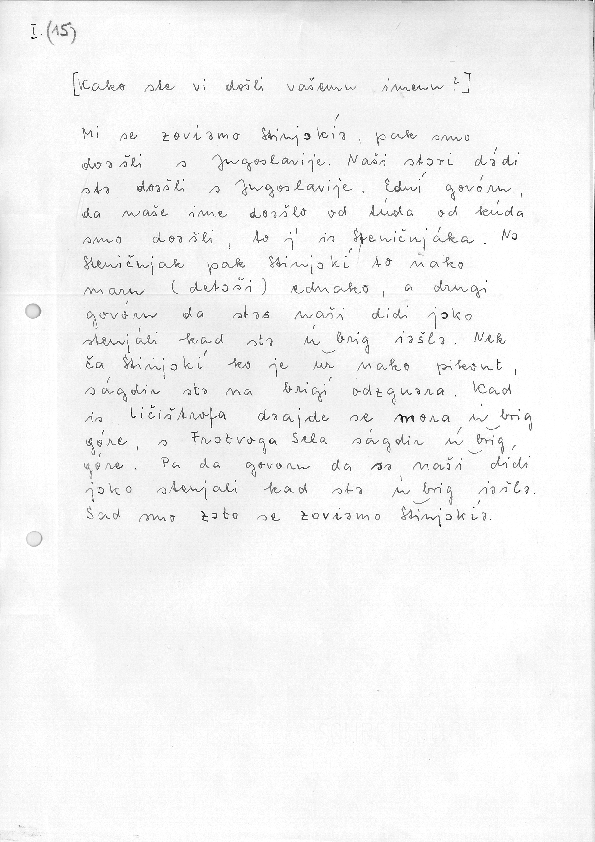 I. (15)
[Kako ste vi došli vašemu imenu?]
Mi se zoviamo Štinjskia, pak smo
doašli s Jugoslavije. Naši stari dádi
sta doašli s Jugoslavije. Edni govóru,
da naše ime doašlo od túda od kúda
smo doašli, to j' is Šteničnjáka. No
Šteničnjak pak Štinjski to nako
maru (detoši) ednako, a drugi
govóru da staa naši didi jako
stenjáli kad sta ú brig iašla. Nek
ča Štinjskí ko je ur nako pikont,
ságdir sta na brigí odzguara. Kad
is Ličištrofa daajde se mora ú brig
góre, s Frstvoga Sela ságdir ú brig,
góre. Pa da govoru da sa naši dídi
jako stenjali kad sta ú brig iašla.
Sad smo zato se zoviamo Štinjskia.